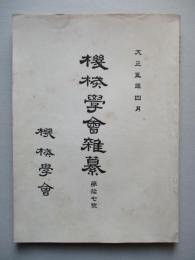 大正五年四月
機械學會雜纂
第拾七號
機械學會